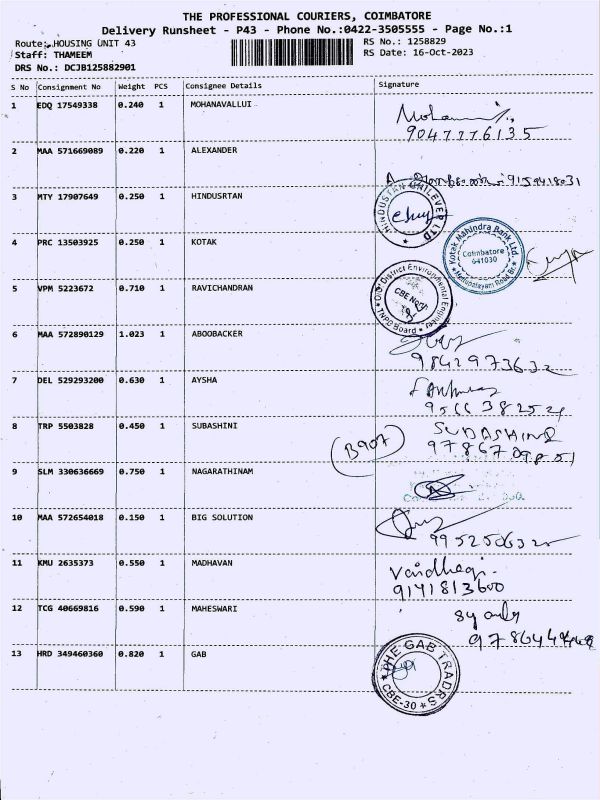 THE PROFESSIONAL COURIERS, COIMBATORE
Delivery Runsheet - P43 - Phone No.:0422-3505555 - Page No.:1
Route: HOUSING UNIT 43 RS No.: 1258829
Staff: THAMEEM RS Date: 16-Oct-2023
DRS No.: DCJB125882901
S No Consignment No Weight PCS Consignee Details Signature
1 EDQ 17549338 0.240 1 MOHANAVALLUI
9047276135
2 MAA 571669089 0.220 1 ALEXANDER
A
3 MTY 17907649 0.250 1 HINDUSRTAN
HINDUSTAN UNILEVER LTD
4 PRC 13503925 0.250 1 KOTAK
Kotak Mahindra Bank Ltd.
Coimbatore
641030
5 VPM 5223672 0.710 1 RAVICHANDRAN
District Environmental Engineer
TNPC Board
6 MAA 572890129 1.023 1 ABOOBACKER
9842973632
7 DEL 529293200 0.630 1 AYSHA
8 TRP 5503828 0.450 1 SUBASHINI
SUBASHINI
9786709851
B907
9 SLM 330636669 0.750 1 NAGARATHINAM
10 MAA 572654018 0.150 1 BIG SOLUTION
11 KMU 2635373 0.550 1 MADHAVAN
Vaidhegi
9141813600
12 TCG 40669816 0.590 1 MAHESWARI
13 HRD 349460360 0.820 1 GAB
THE GAB TRADRS
CBE-30